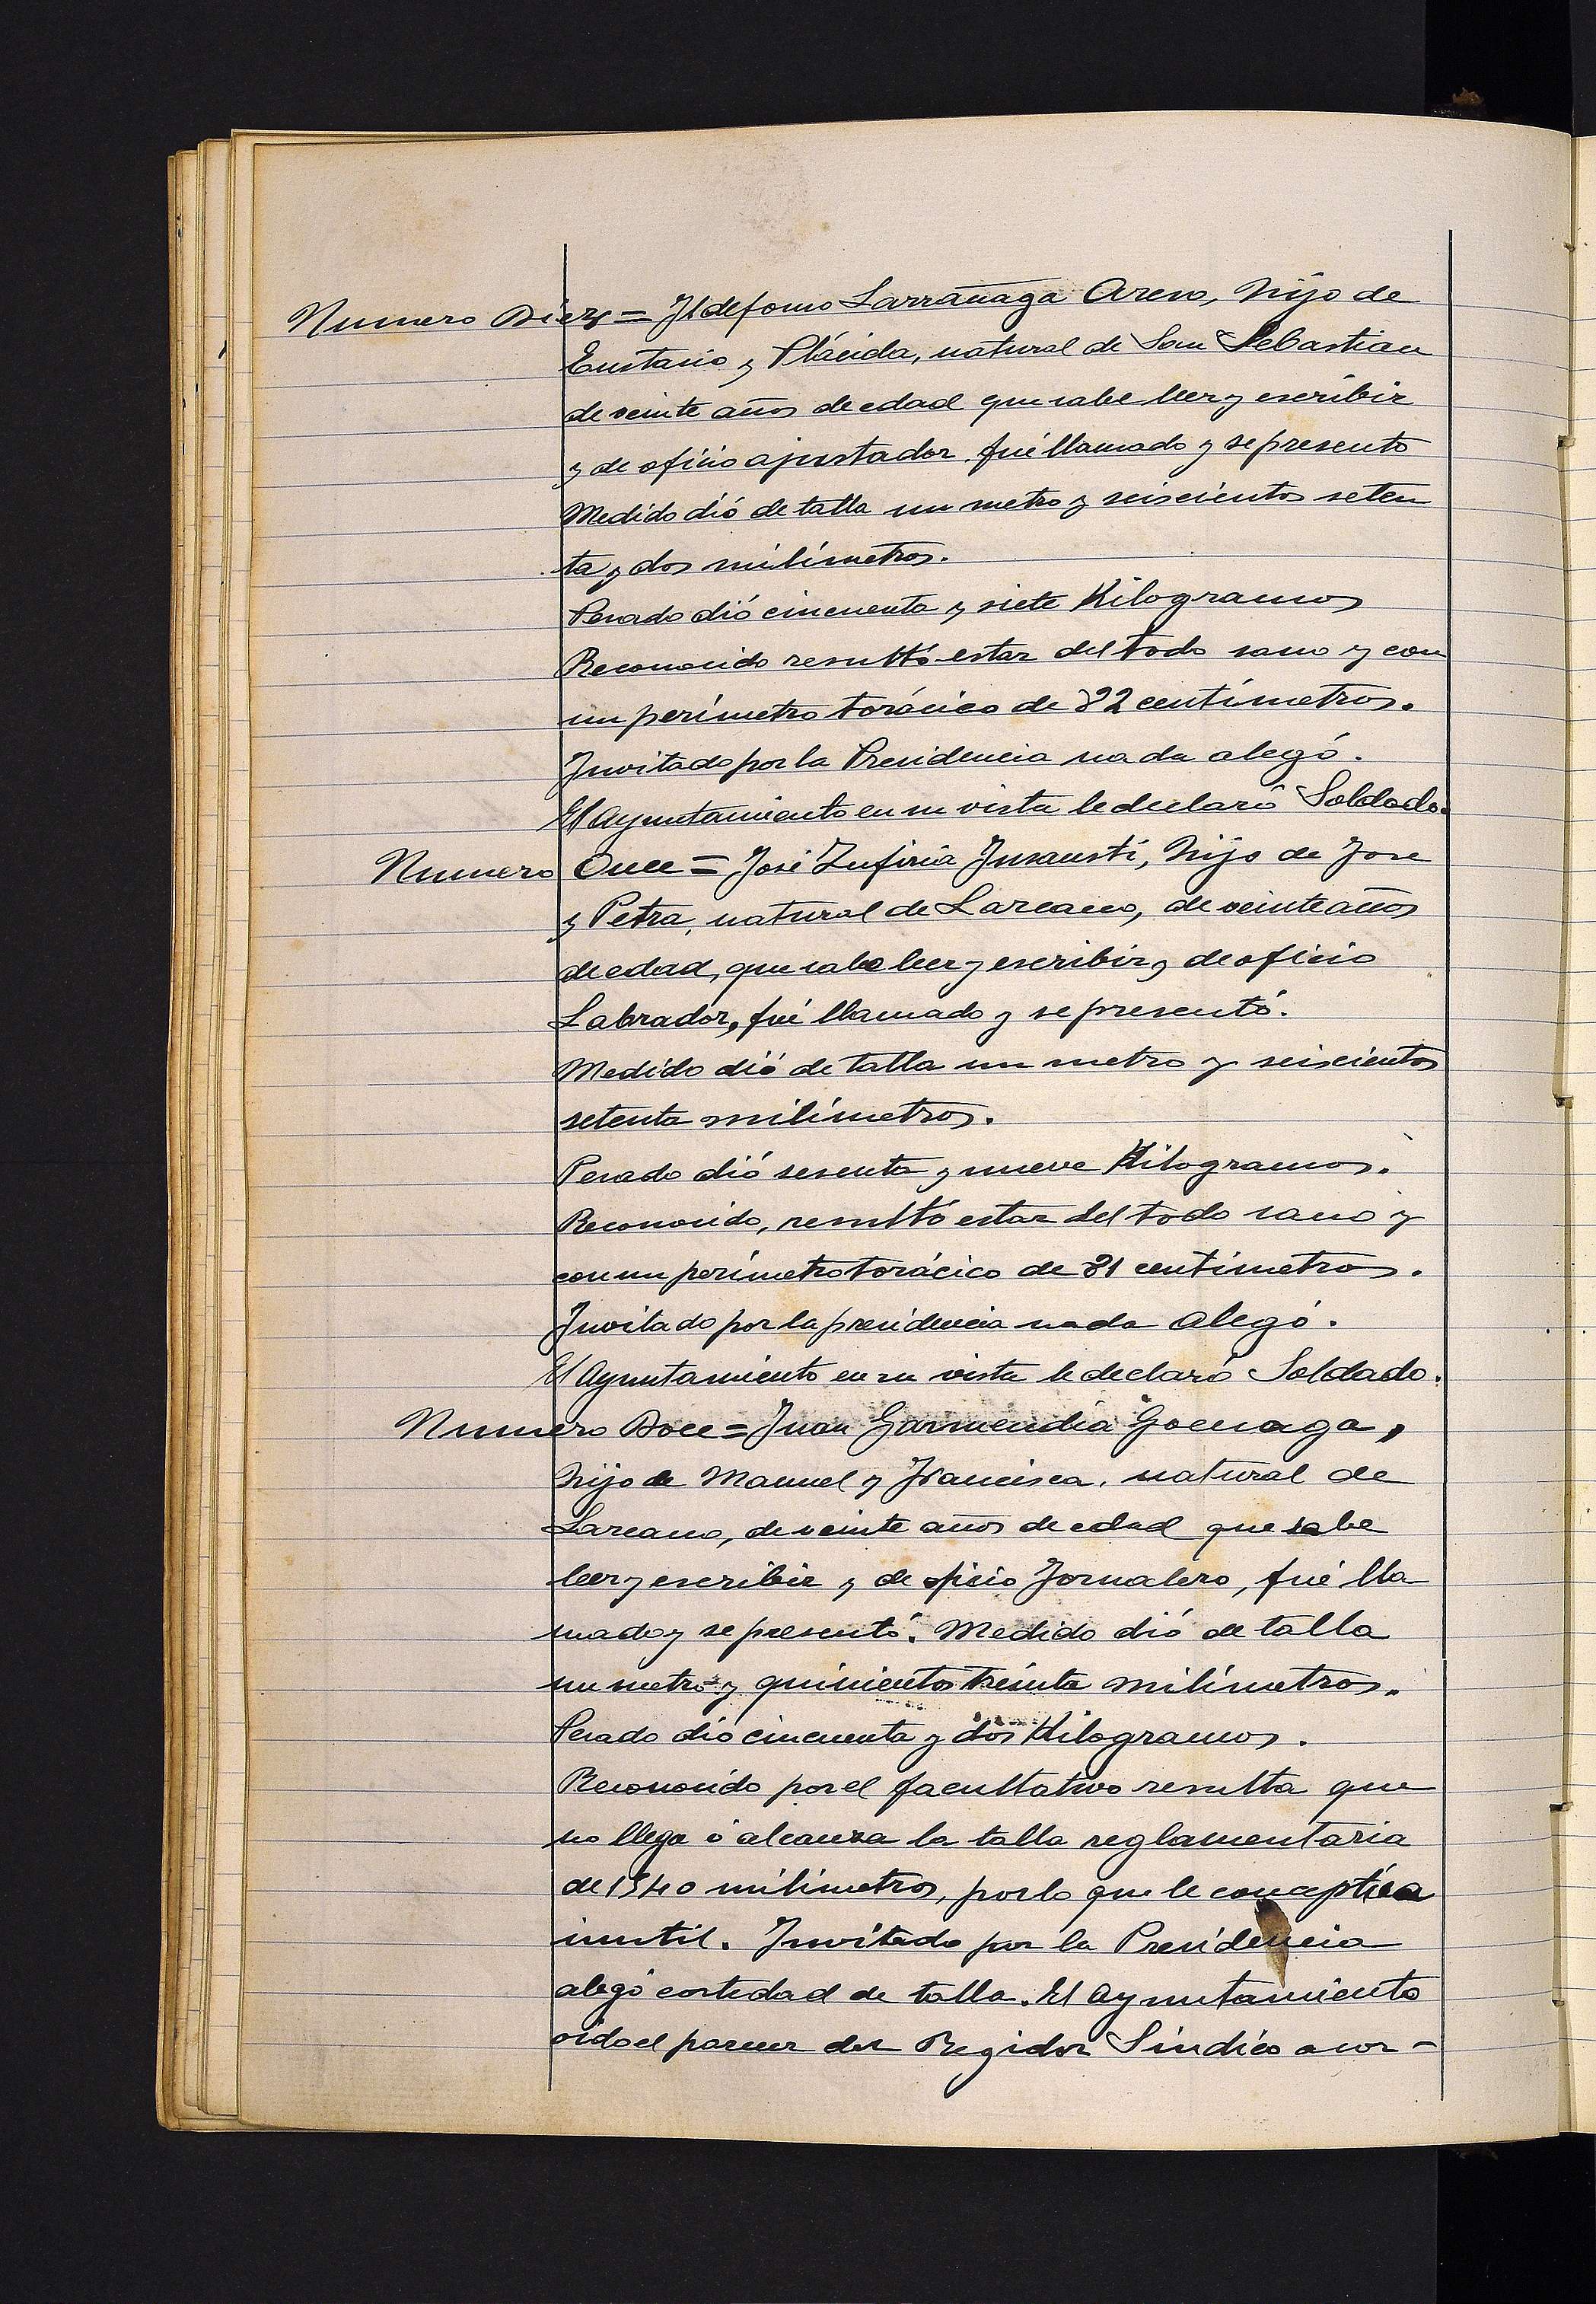 Numero Diez = Ildefonso Larrañaga Oreso, hijo de
Eustasio y Plácida, natural de San Sebastian
de veinte años de edad que sabe leer y escribir
y de oficio ajustador, fué llamado y se presento
Medido dió de talla un metro y seiscientos seten
ta y dos milímetros.
Pesado dió cincuenta y siete Kilogramos
Reconocido resultó estar del todo sano y con
un perímetro torácico de 82 centímetros.
Invitado por la Presidencia nada alegó.
El Ayuntamiento en su vista le declaró Soldado.
Numero Once = José Zufiria Insausti, hijo de Jose
y Petra, natural de Lazcano, de veinte años
de edad, que sabe leer y escribir y de oficio
Labrador, fué llamado y se presentó.
Medido dió de talla un metro y seiscientos
setenta milímetros.
Pesado dió sesenta y nueve Kilogramos.
Reconocido, resultó estar del todo sano y
con un perímetro torácico de 81 centímetros.
Invitado por la presidencia nada alegó.
El Ayuntamiento en su vista le declaró Soldado.
Numero Doce = Juan Garmendia Goenaga,
hijo de Manuel y Francisca, natural de
Lazcano, de veinte años de edad que sabe
leer y escribir y de oficio Jornalero, fué lla
mado y se presentó. Medido dió de talla
un metro y quinientos treinta milímetros.
Pesado dió cincuenta y dos Kilogramos.
Reconocido por el facultativo resulta que
no llega ó alcanza la talla reglamentaria
de 1540 milímetros, por lo que le conceptúa
inutil. Invitado por la Presidencia
alegó cortedad de talla. El Ayuntamiento
oido el parecer del Regidor Síndico acor-